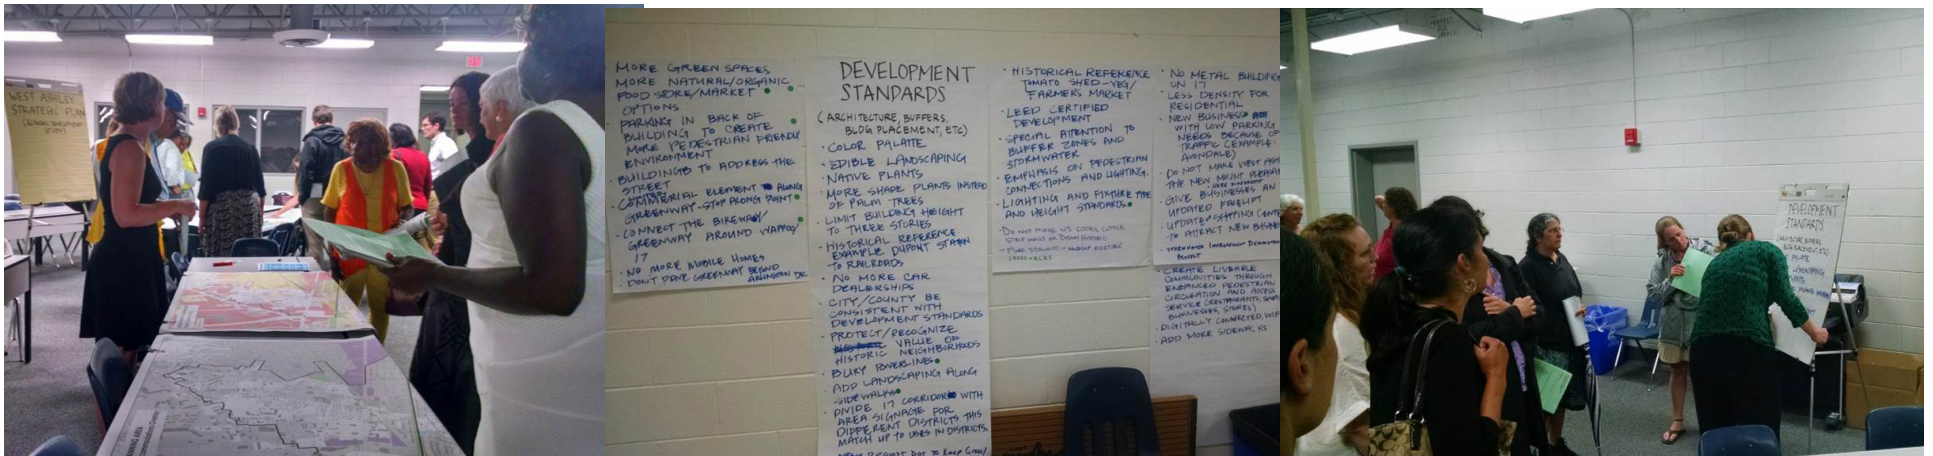 WEST ASHLEY
STRATEGIC PLAN
MORE GREEN SPACES
MORE NATURAL/ORGANIC
FOOD STORE/MARKET
OPTIONS
PARKING IN BACK OF
BUILDING TO CREATE
MORE PEDESTRIAN FRIENDLY
ENVIRONMENT
BUILDINGS TO ADDRESS THE
STREET
COMMERCIAL ELEMENT ALONG
GREENWAY-STOP ALONG POINT
CONNECT THE BIKEWAY/
GREENWAY AROUND WAPPOO/
17
NO MORE MOBILE HOMES
DON'T PAVE GREENWAY BEHIND
ARLINGTON DR.
DEVELOPMENT
STANDARDS
(ARCHITECTURE, BUFFERS,
BLDG PLACEMENT, ETC)
• COLOR PALATTE
• EDIBLE LANDSCAPING
• NATIVE PLANTS
• MORE SHADE PLANTS INSTEAD
OF PALM TREES
• LIMIT BUILDING HEIGHT
TO THREE STORIES
• HISTORICAL REFERENCE
EXAMPLE DUPONT STATION
TO RAILROADS
• NO MORE CAR
DEALERSHIPS
• CITY/COUNTY BE
CONSISTENT WITH
DEVELOPMENT STANDARDS
• PROTECT/RECOGNIZE
VALUE OF
HISTORIC NEIGHBORHOODS
• BURY POWERLINES
• ADD LANDSCAPING ALONG
SIDEWALKS
• DIVIDE 17 CORRIDOR WITH
AREA SIGNAGE FOR
DIFFERENT DISTRICTS THIS
MATCH UP TO USES IN DISTRICTS.
• HISTORICAL REFERENCE
TOMATO SHED-VEG/
FARMERS MARKET
• LEED CERTIFIED
DEVELOPMENT
• SPECIAL ATTENTION TO
BUFFER ZONES AND
STORMWATER
• EMPHASIS ON PEDESTRIAN
CONNECTIONS AND LIGHTING,
• LIGHTING AND FIXTURE TYPE
AND HEIGHT STANDARDS.
• DO NOT MAKE US COOKIE CUTTER
STRIP MALLS OR
CROSSWALKS
• NO METAL BUILDING
ON 17
• LESS DENSITY FOR
RESIDENTIAL
• NEW BUSINESS
WITH LOW PARKING
NEEDS BECAUSE OF
TRAFFIC (EXAMPLE:
AVONDALE)
• DO NOT MAKE WEST ASH
THE NEW MOUNT PLEASAN
• GIVE BUSINESSES AN
UPDATED FACELIFT
• UPDATE SHIPPING CENTE
TO ATTRACT NEW BUSINE
• STORMWATER IMPROVEMENT
PROJECT
• CREATE LIVEABLE
COMMUNITIES THROUGH
ENHANCED PEDESTRIAN
CIRCULATION AND ACCESS
SERVICE (RESTAURANTS,
BUSINESSES, STORES)
• DIGITALLY CONNECTED,
• ADD MORE SIDEWALKS
DEVELOPMENT
STANDARDS